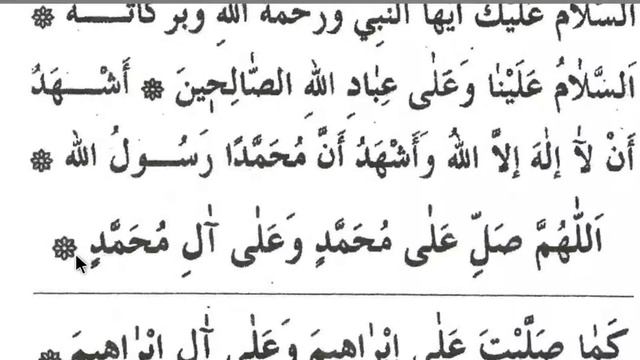 اَلسَّلَامُ عَلَيْكَ اَيُّهَا النَّبِيُّ وَرَحْمَةُ اللهِ وَبَرَكَاتُـــهُ ۞
اَلسَّلاٰمُ عَلَيْنٰا وَعَلٰى عِبٰادِ اللهِ الصّٰالِحِينَ ۞ أَشْـــهَدُ
أَنْ لاٰ إِلٰهَ إِلاَّ اللهُ وَأَشْهَدُ أَنَّ مُحَمَّدًا رَسُـــولُ الله ۞
اَللّٰهُمَّ صَلِّ عَلٰى مُحَمَّدٍ وَعَلٰى آلِ مُحَمَّدٍ ۞
كَمٰا صَلَّيْتَ عَلٰى اِبْرٰاهِيمَ وَعَلٰى آلِ اِبْرٰاهِيمَ ۞